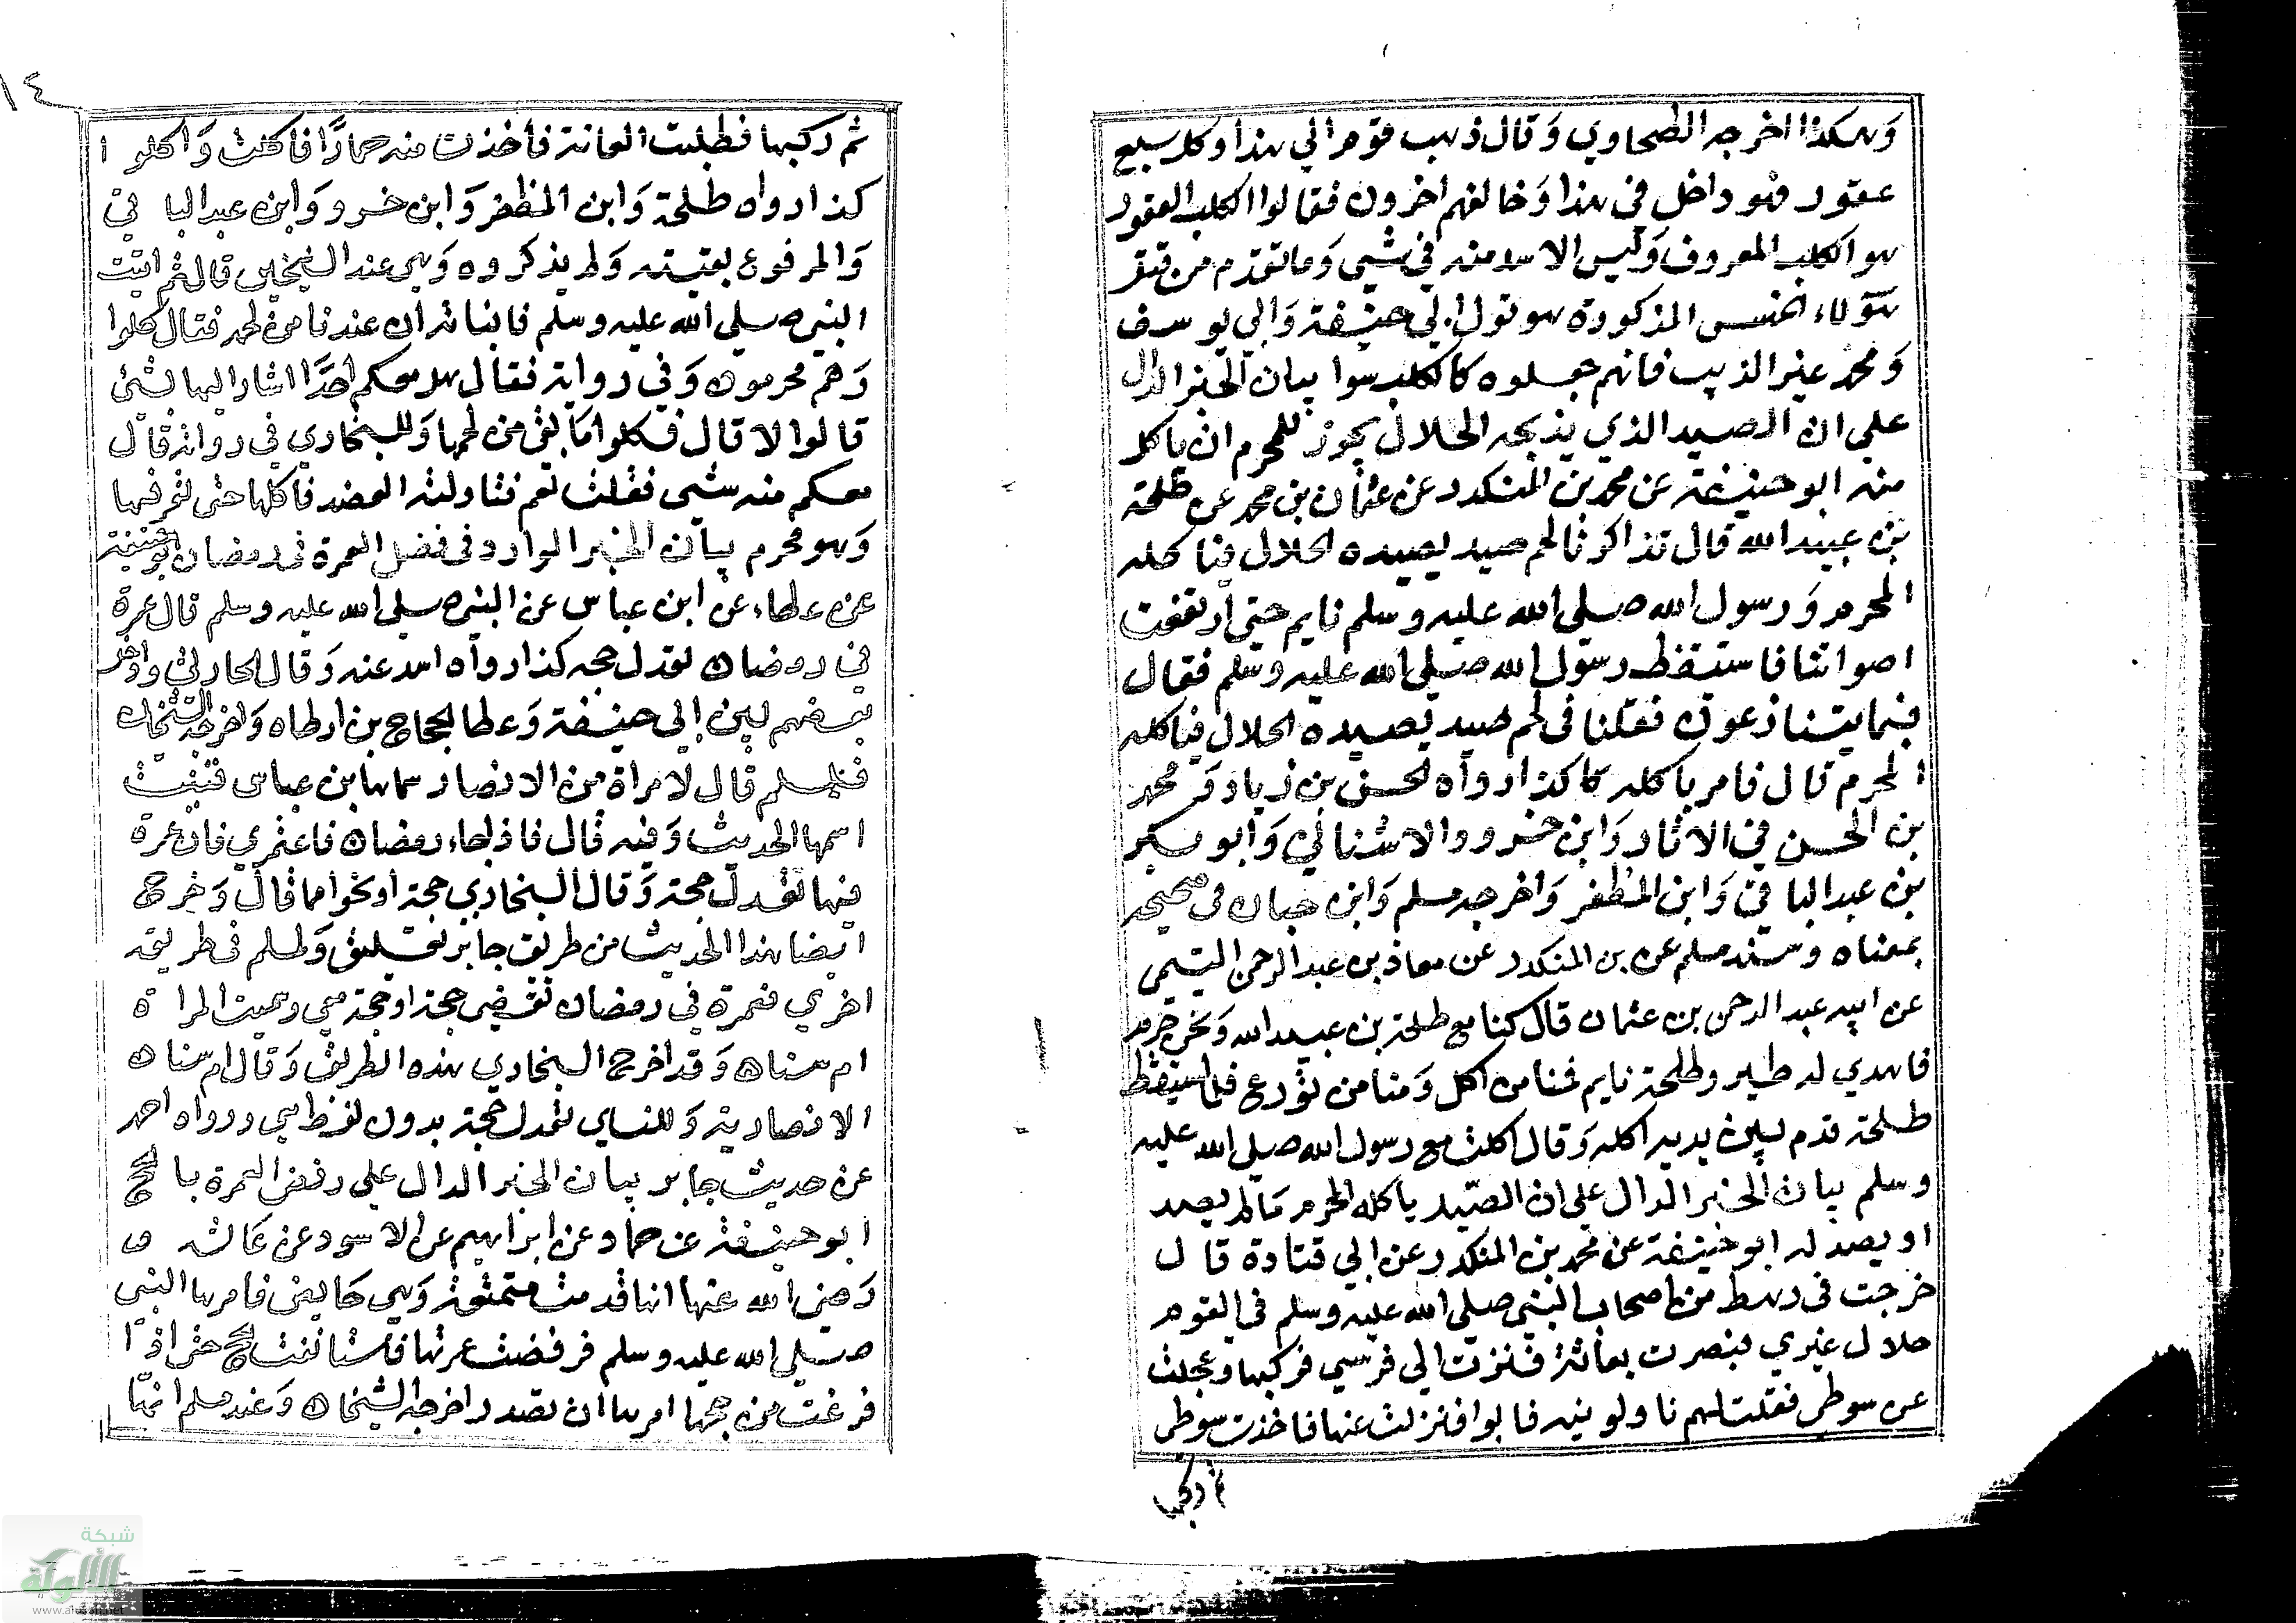 وهكذا اخرجه الطحاوي وقال ذهب قوم الي هذا وكل سبع
عقور فهو داخل في هذا وخالفهم اخرون فقالوا الكلب العقور
هو الكلب المعروف وليس الاسد منه في شيي وما تقدم من قتل
هؤلاء الخمس المذكورة هو قول ابي حنيفة وابي يوسف
ومحمد غير الذيب فانهم جعلوه كالكلب سوا بيان الخبر الدال
علي ان الصيد الذي يذبحه الحلال يجوز للمحرم ان ياكل
منه ابو حنيفة عن محمد بن المنكدر عن عثمان بن محمد عن طلحة
بن عبيد الله قال تذاكرنا لحم صيد يصيده الحلال فياكله
المحرم ورسول الله صلي الله عليه وسلم نايم حتي ارتفعت
اصواتنا فاستيقظ رسول الله صلي الله عليه وسلم فقال
فيما يتنازعون فقلنا في لحم صيد يصيده الحلال فياكله
المحرم قال فامر باكله كذا رواه لحسن بن زياد و محمد
بن الحسن في الاثار وابن خسرو والاشناني وابو بكر
بن عبد الباقي وابن المظفر واخرجه مسلم وابن حبان في صحيحه
بمعناه وسند مسلم عن بن المنكدر عن معاذ بن عبد الرحمن التيمي
عن ابيه عبد الرحمن بن عثمان قال كنا مع طلحة بن عبيد الله ونحن حرم
فاهدي له طير وطلحة نايم فمنا من اكل ومنا من تورع فلما استيقظ
طلحة قدم بين يديه اكله وقال اكلت مع رسول الله صلي الله عليه
وسلم بيان الخبر الدال علي ان الصيد ياكله المحرم مالم يصد
او يصد له ابو حنيفة عن محمد بن المنكدر عن ابي قتادة قال
خرجت في رهط من اصحاب النبي صلي الله عليه وسلم في القوم
حلال غيري فبصرت بعانة فنزت الي فرسي فركبها وعجلت
عن سوطي فقلت لهم ناولونيه فابوا فنزلت عنها فاخذت سوطي
ثم ركبها
١٤
ثم ركبها فطلبت العانة فأخذت منه حمارًا فاكلت واكلوا
كذا رواه طلحة وابن المظفر وابن خسرو وابن عبد الباقي
والمرفوع بقيته ولم يذكروه وهي عند الشيخين قال ثم اتيت
النبي صلي الله عليه وسلم فانبأته ان عندنا من لحمه فقال كلوا
وهم محرمون وفي رواية فقال هل معكم احدًا اشار اليها لشئ
قالوا لا قال فكلوا ما بقي من لحمها وللبخاري في رواية قال
معكم منه شيي فقلت نعم فناولته العضد فاكلها حتي تعرقها
وهو محرم بيان الخبر الوارد في فضل العمرة في رمضان ابو حنيفة
عن عطاء عن ابن عباس عن النبي صلي الله عليه وسلم قال عمرة
في رمضان تعدل حجه كذا رواه اسد عنه وقال الحارثي وادخل
بعضهم بين ابي حنيفة وعطا الحجاج بن ارطاه واخرجه الشيخان
فلمسلم قال لامراة من الانصار سماها ابن عباس فنسيت
اسمها الحديث وفيه قال فاذا جاء رمضان فاعتمري فان عمرة
فيها تعدل حجة وقال البخاري حجة او نحوا مما قال وخرج
ايضا هذا الحديث من طريق جابر تعليق ولمسلم في طريقه
اخري فعمرة في رمضان تقضي حجة او حجة معي وسميت المراة
ام سنان وقد اخرج البخاري هذه الطريق وقال ام سنان
الانصارية وللنساي تعدل حجة بدون لفظ معي ورواه احمد
عن حديث جابر بيان الخبر الدال علي رفض العمرة بالحج
ابو حنيفة عن حماد عن ابراهيم عن الاسود عن عائشه
رضي الله عنها انها قدمت متمتعة وهي حايض فامرها النبي
صلي الله عليه وسلم فرفضت عمرتها فاستانفت الحج حتي اذا
فرغت من حجها امرها ان تصدر اخرجه الشيخان وعند مسلم انها
شبكة
الألوكة
www.alukah.net